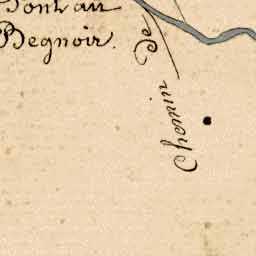 Pont au
Begnoir.
Chemin de